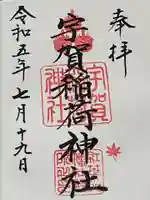 奉拝
宇賀稲荷神社
令和五年七月十九日